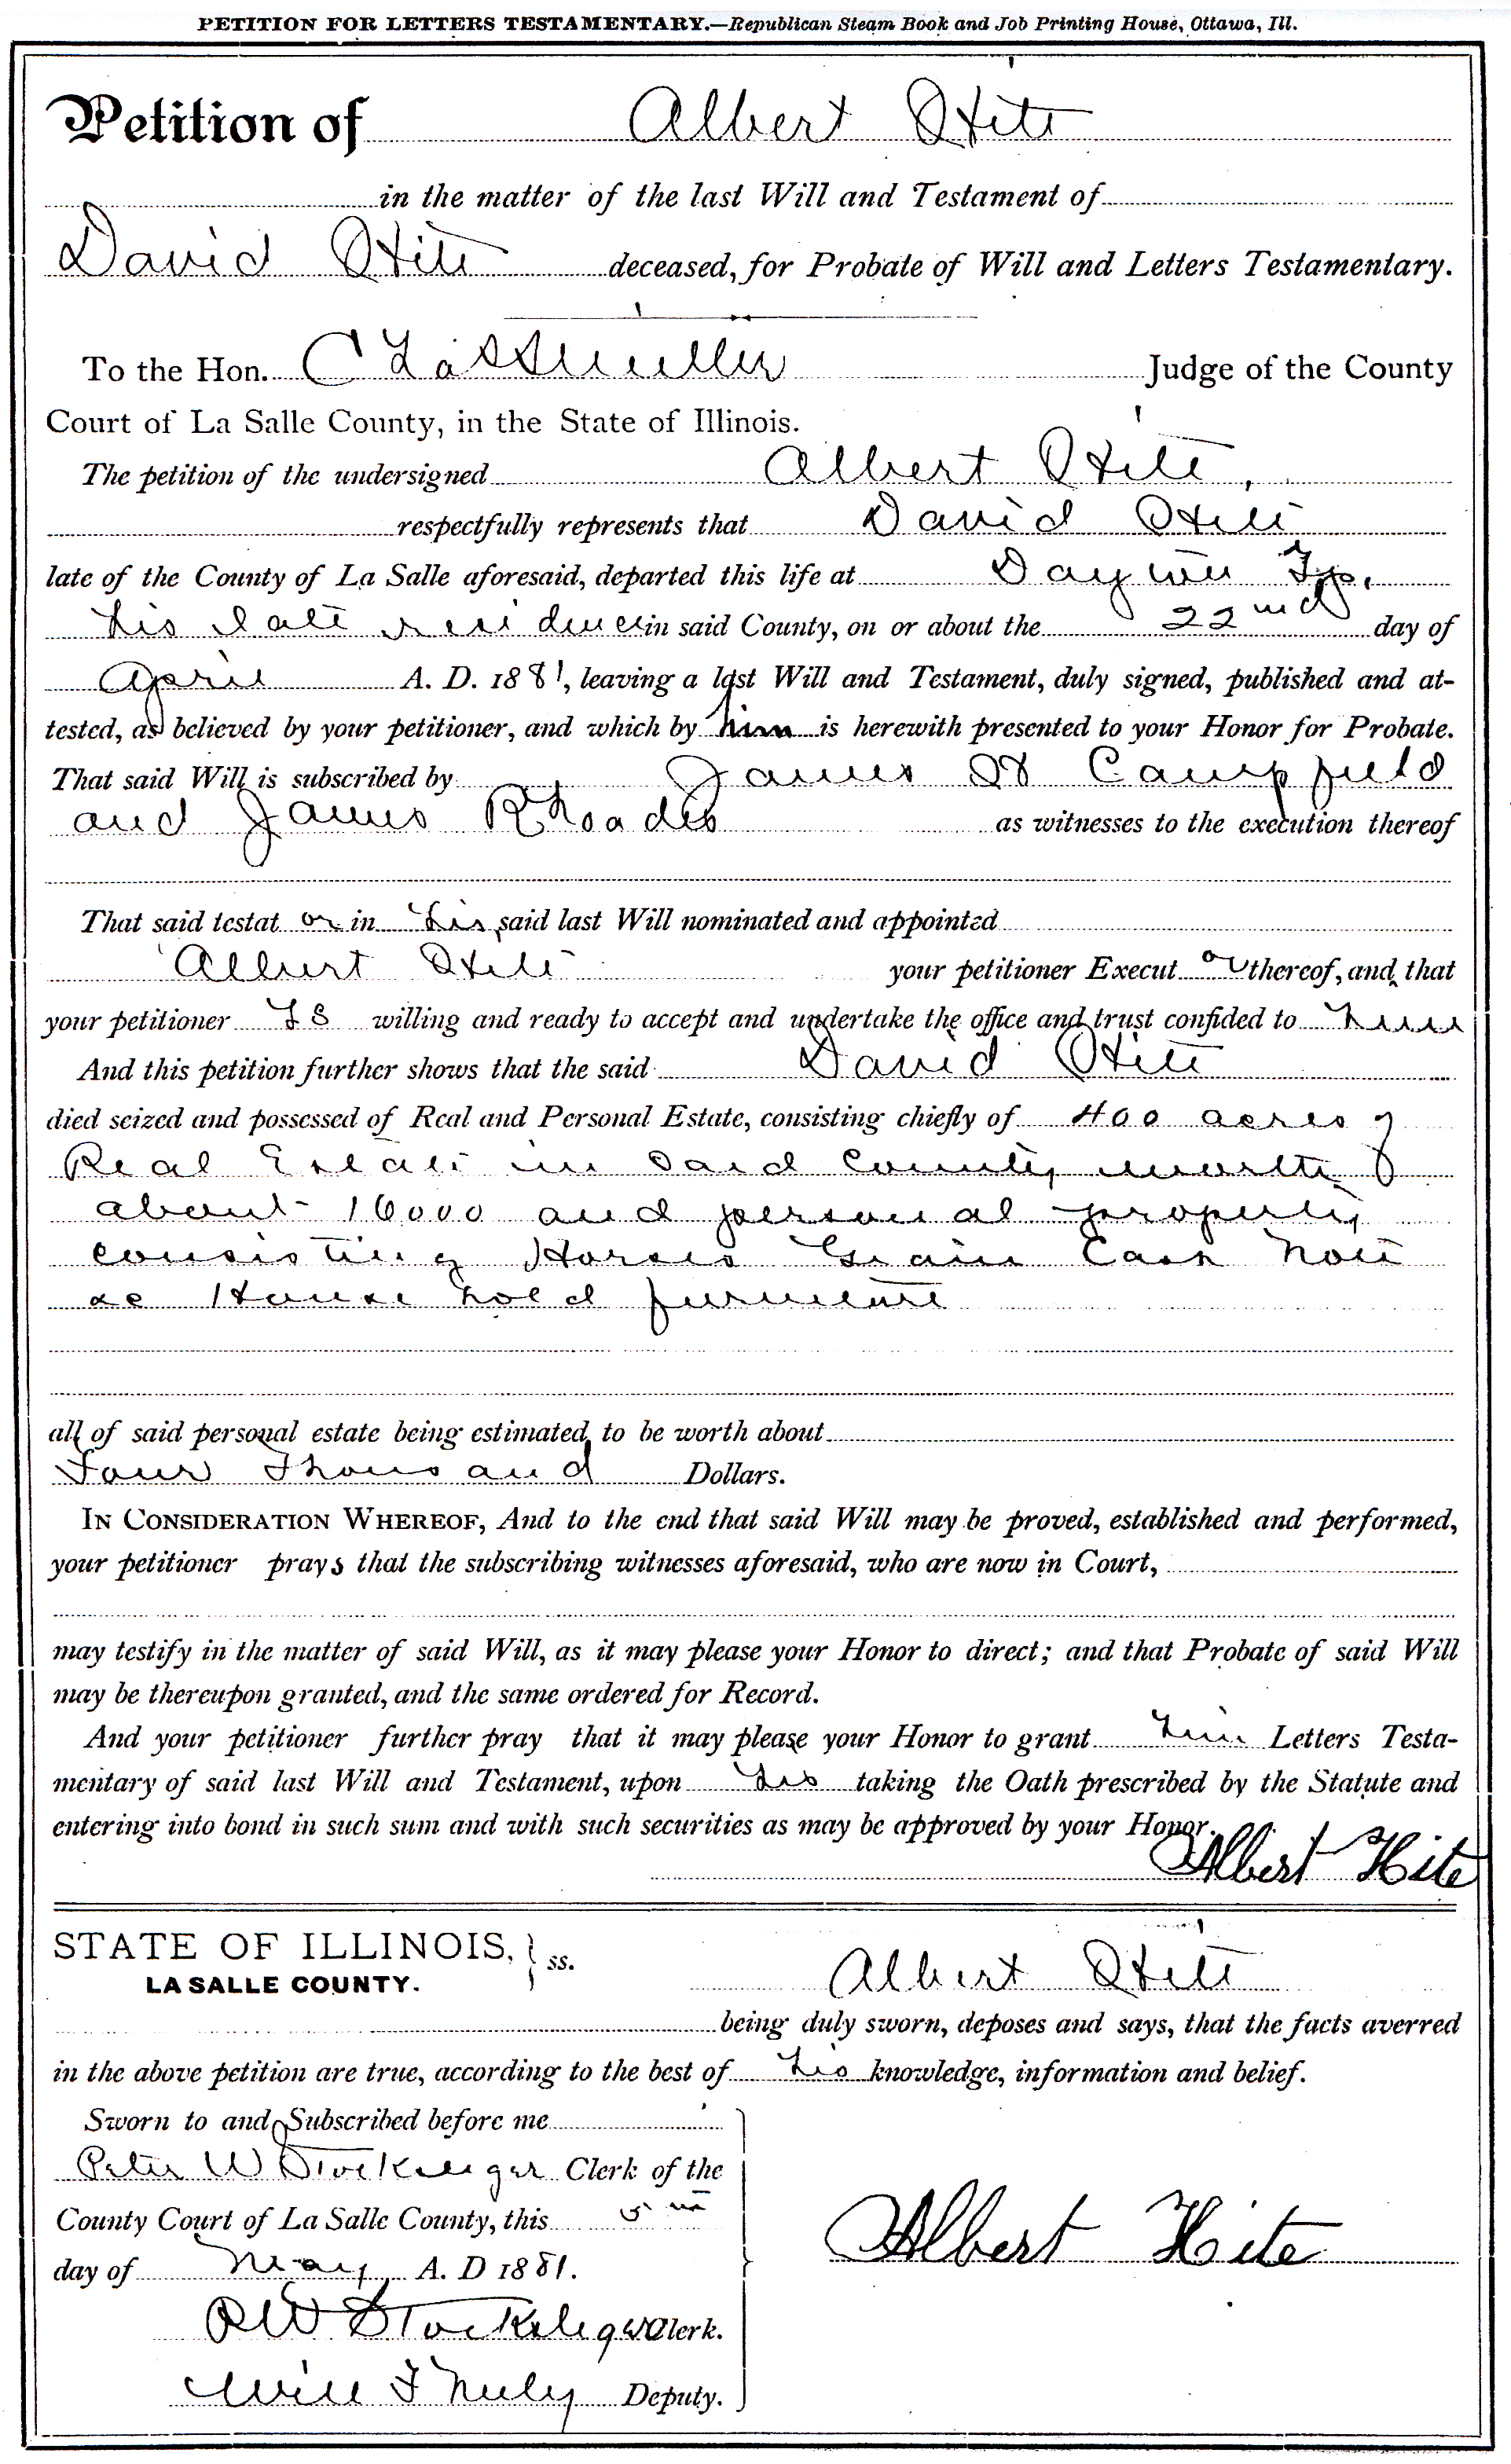 PETITION FOR LETTERS TESTAMENTARY.—Republican Steam Book and Job Printing House, Ottawa, Ill.
Petition of Albert Hite
in the matter of the last Will and Testament of
David Hite deceased, for Probate of Will and Letters Testamentary.
To the Hon. Judge of the County
Court of La Salle County, in the State of Illinois.
The petition of the undersigned Albert Hite,
respectfully represents that David Hite
late of the County of La Salle aforesaid, departed this life at Dayton Tp.
his late residence in said County, on or about the 22nd day of
April A. D. 1881, leaving a last Will and Testament, duly signed, published and at-
tested, as believed by your petitioner, and which by him is herewith presented to your Honor for Probate.
That said Will is subscribed by James H Campfield
and James Rhoades as witnesses to the execution thereof
That said testat or in his said last Will nominated and appointed
Albert Hite your petitioner Execut or thereof, and that
your petitioner is willing and ready to accept and undertake the office and trust confided to him
And this petition further shows that the said David Hite
died seized and possessed of Real and Personal Estate, consisting chiefly of 400 acres of
Real Estate in said County worth
about 16000 and personal property
consisting Horses Grain Cash Note
&c House hold furniture
all of said personal estate being estimated to be worth about
Four Thousand Dollars.
IN CONSIDERATION WHEREOF, And to the end that said Will may be proved, established and performed,
your petitioner prays that the subscribing witnesses aforesaid, who are now in Court,
may testify in the matter of said Will, as it may please your Honor to direct; and that Probate of said Will
may be thereupon granted, and the same ordered for Record.
And your petitioner further pray that it may please your Honor to grant him Letters Testa-
mentary of said last Will and Testament, upon his taking the Oath prescribed by the Statute and
entering into bond in such sum and with such securities as may be approved by your Honor.
Albert Hite
STATE OF ILLINOIS, } ss.
LA SALLE COUNTY.
Albert Hite
being duly sworn, deposes and says, that the facts averred
in the above petition are true, according to the best of his knowledge, information and belief.
Sworn to and Subscribed before me
Peter W Clerk of the
County Court of La Salle County, this 5th
day of May A. D 1881.
Albert Hite
P W Clerk.
Will Deputy.